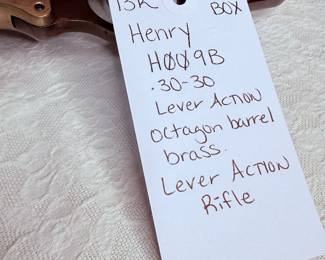 13K BOX
Henry
HØØ9B
.30-30
Lever Action
octagon barrel
brass.
Lever Action
Rifle